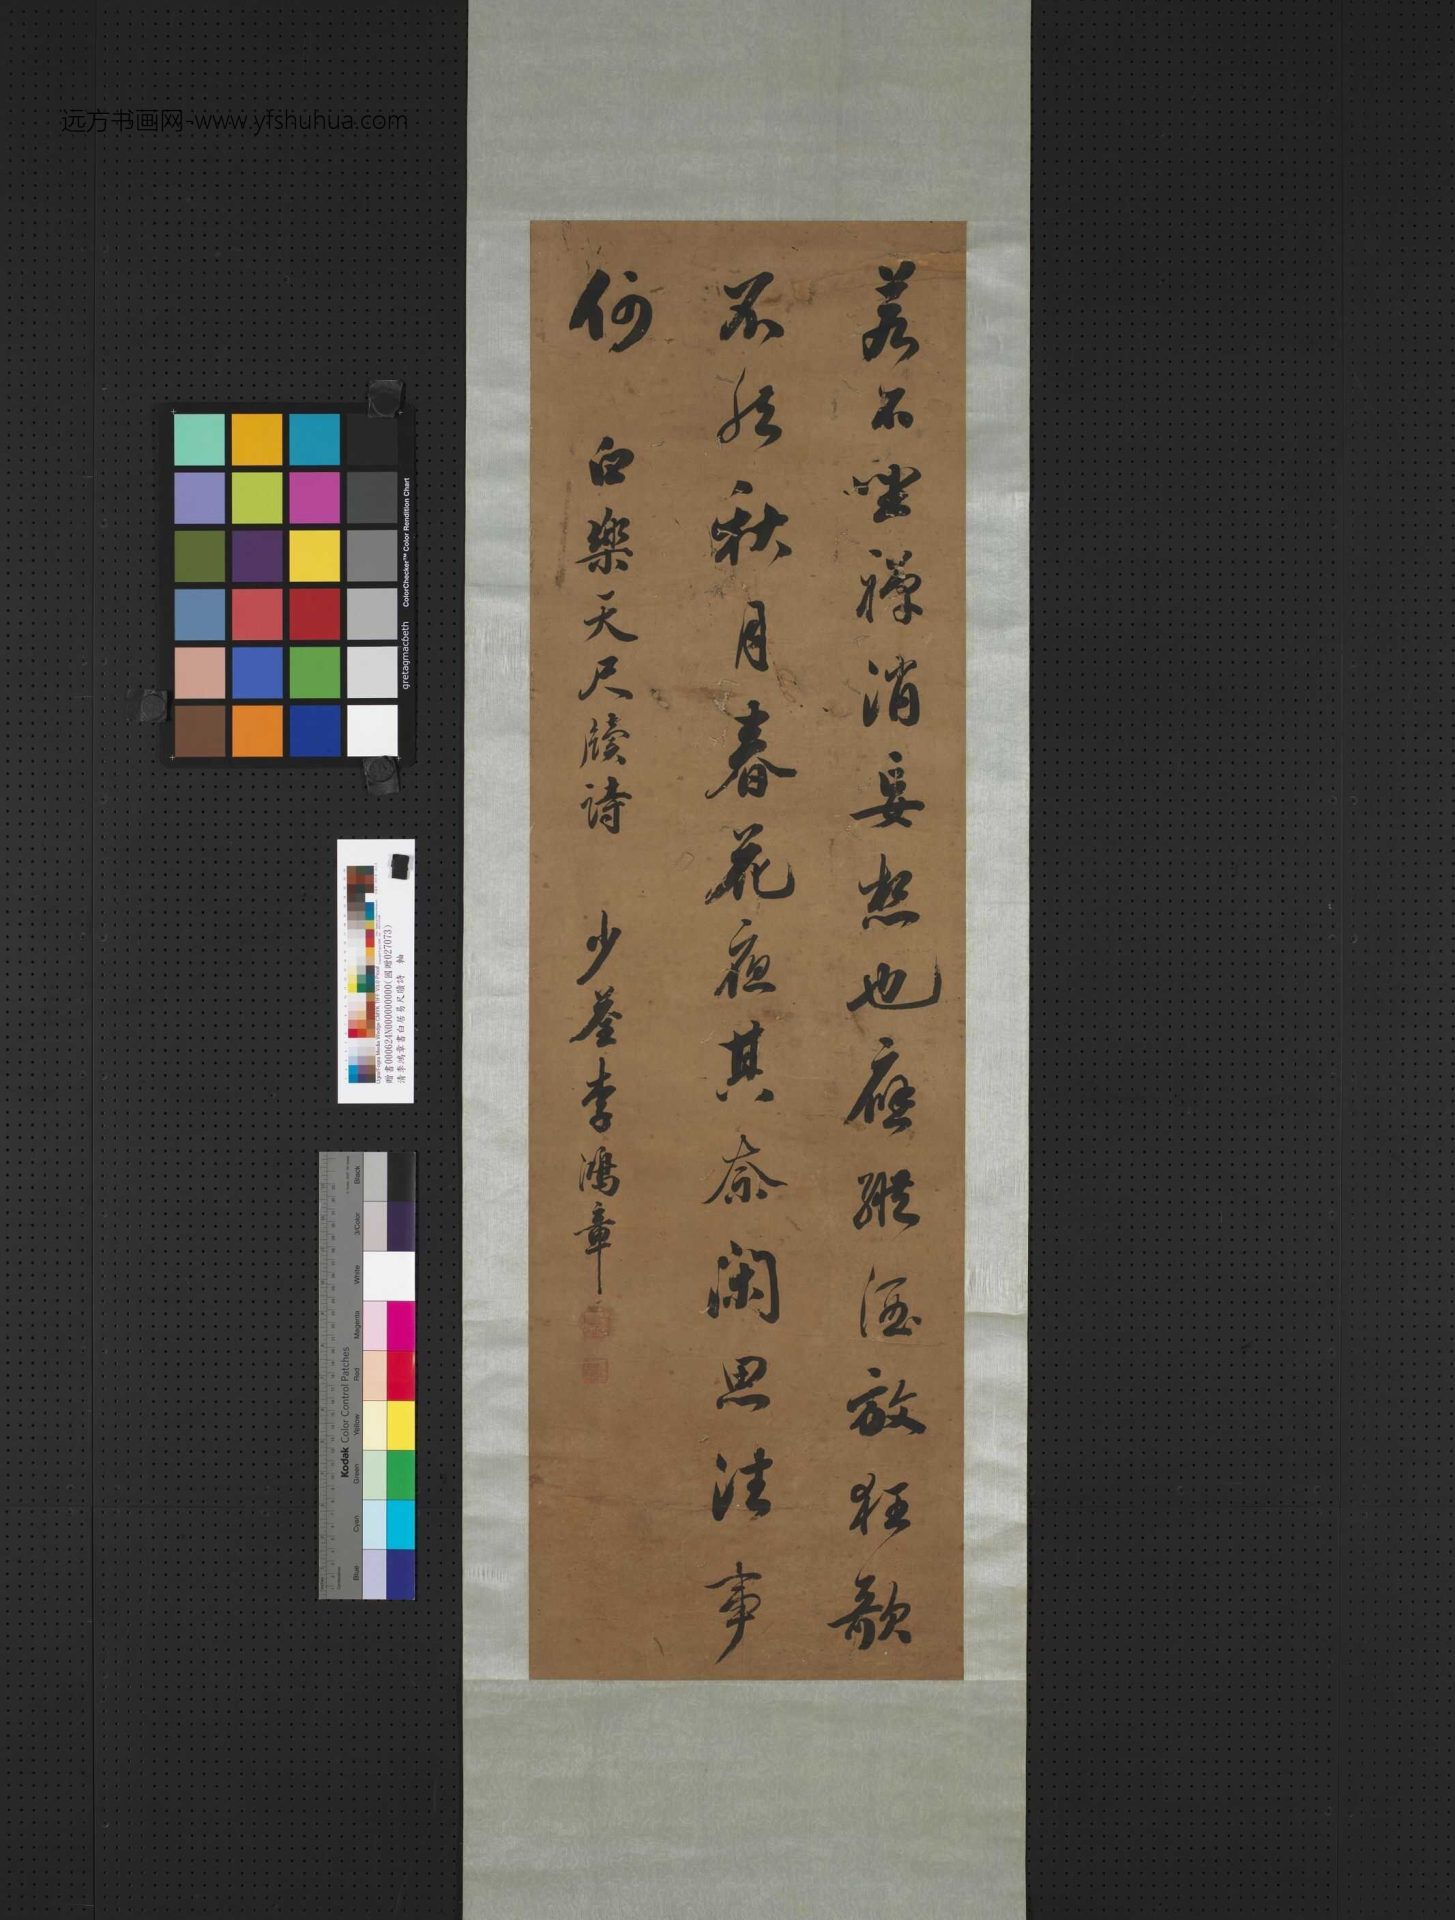 远方书画网-www.yfshuhua.com
若不坐禪消妄想也應縱酒放狂歌
不然秋月春花夜其奈閑思往事
何
白樂天尺牘詩
少荃李鴻章
ColorChecker™ Color Rendition Chart
gretagmacbeth
贈書000624N000000000(國贈027073)
清李鴻章書白居易尺牘詩 軸
Kodak Color Control Patches
Black
3/Color
White
Magenta
Red
Yellow
Green
Cyan
Blue